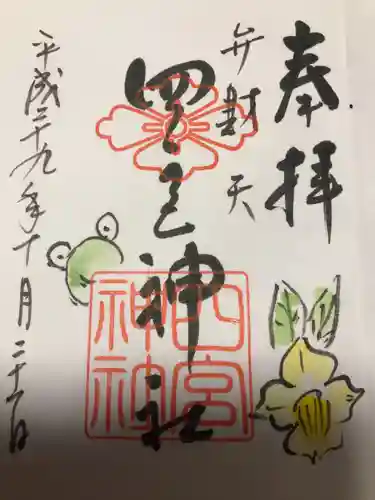 奉拝
弁財天
四宮神社
四宮
神社
平成二十九年十月二十一日